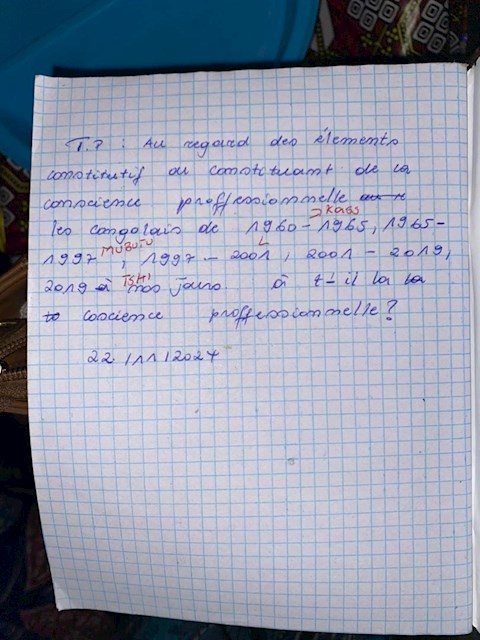 T.P : Au regard des élements
constitutif ou constituant de la
conscience proffessionnelle
les congolais de 1960 - 1965, 1965 -
Kass
1997, 1997 - 2001, 2001 - 2019,
MUBUTU
L
2019 à nos jours à t-il la la
TSHI
coscience proffessionnelle?
22/11/2024